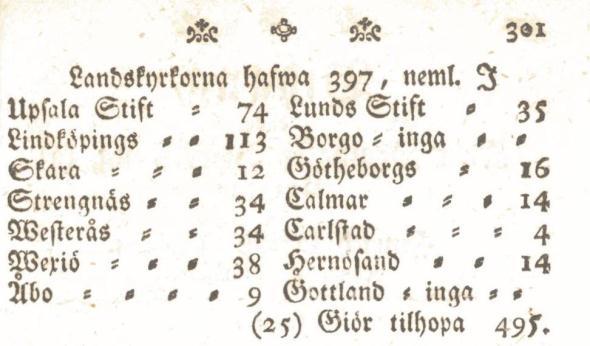 301
Landskyrkorna hafwa 397, neml. J
Upsala Stift = 74 Lunds Stift = 35
Lindköpings = = 113 Borgo = inga = =
Skara = = = 12 Götheborgs = 16
Strengnäs = = 34 Calmar = = = 14
Westerås = = 34 Carlstad = = = 4
Wexiö = = = 38 Hernösand = = 14
Åbo = = = = 9 Gottland = inga = =
(25) Giör tilhopa 495.